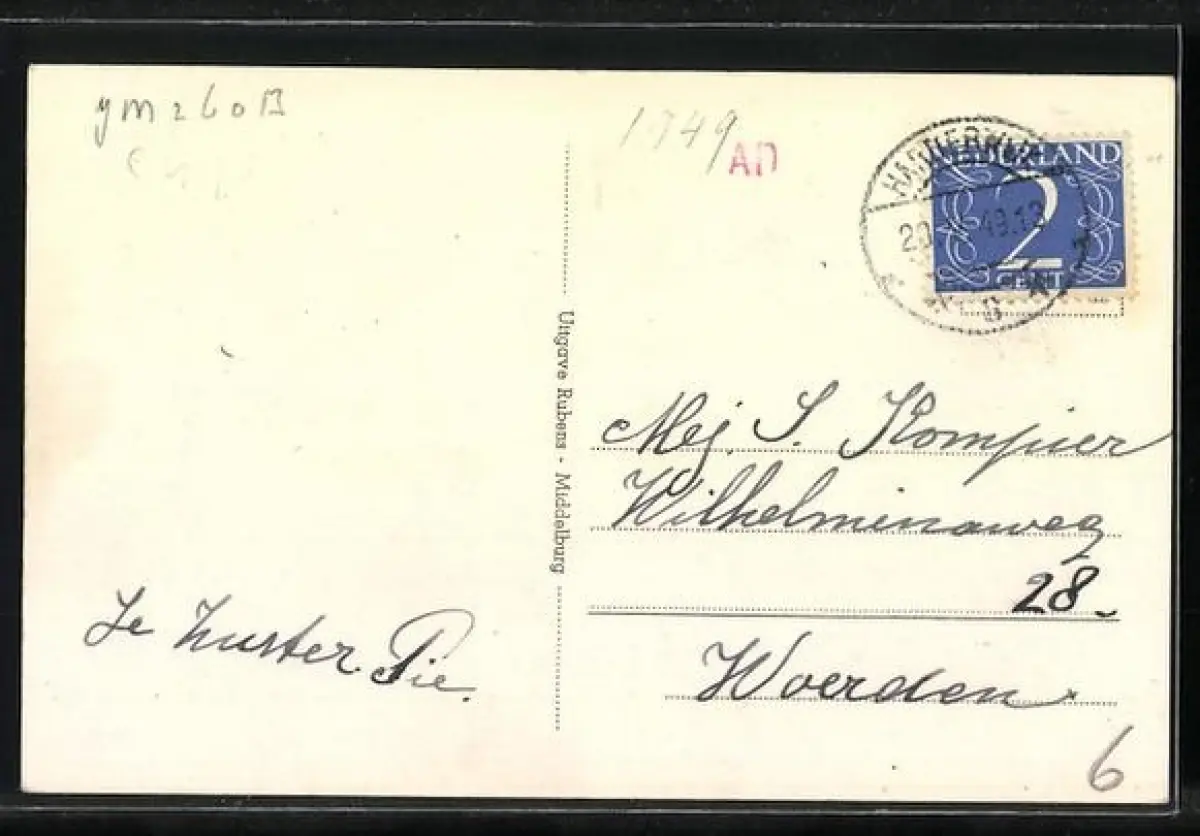 ym260B
1949
AD
NEDERLAND
2
CENT
Uitgave Rubens - Middelburg
Mej. S. Kompier
Wilhelminaweg
28
Woerden
Je zuster. Pie.
6